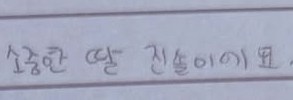 소중한 딸 진솔이에요.